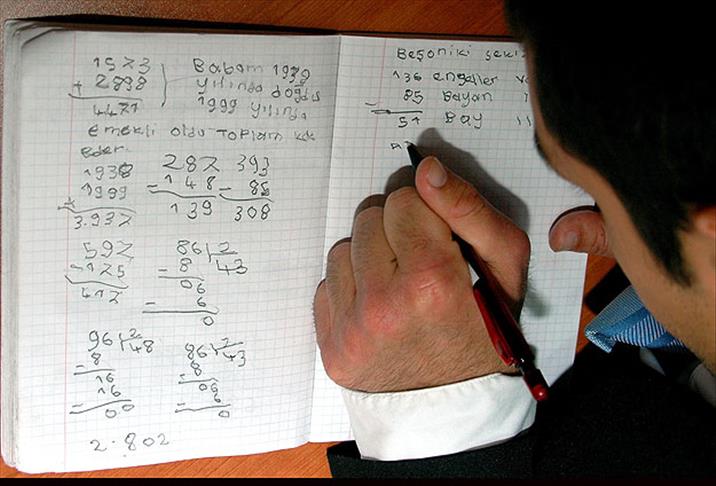 1573
+ 2898
4471
Babam 1939
yılında doğdu
1999 yılında
emekli oldu Toplam kaç
eder.
1938
+ 1999
3.937
287
- 148
139
393
- 85
308
592
- 175
417
86 2
- 8 43
06
- 6
0
96 2
- 8 48
16
- 16
00
86 2
- 8 43
06
- 6
0
2.802
136 engeller
- 85 Bayan
51 Bay